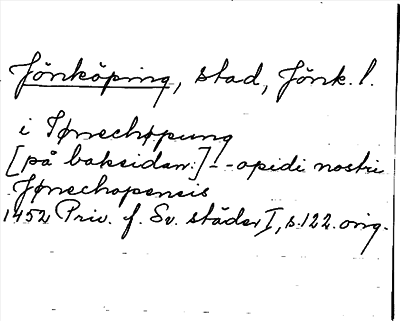 Jönköping, stad, Jönk. l.
i Iønechøpung
[på baksidan:] - - opidi nostri
Jønechopensis
1452 Priv. f. Sv. städer I, s. 122. orig.